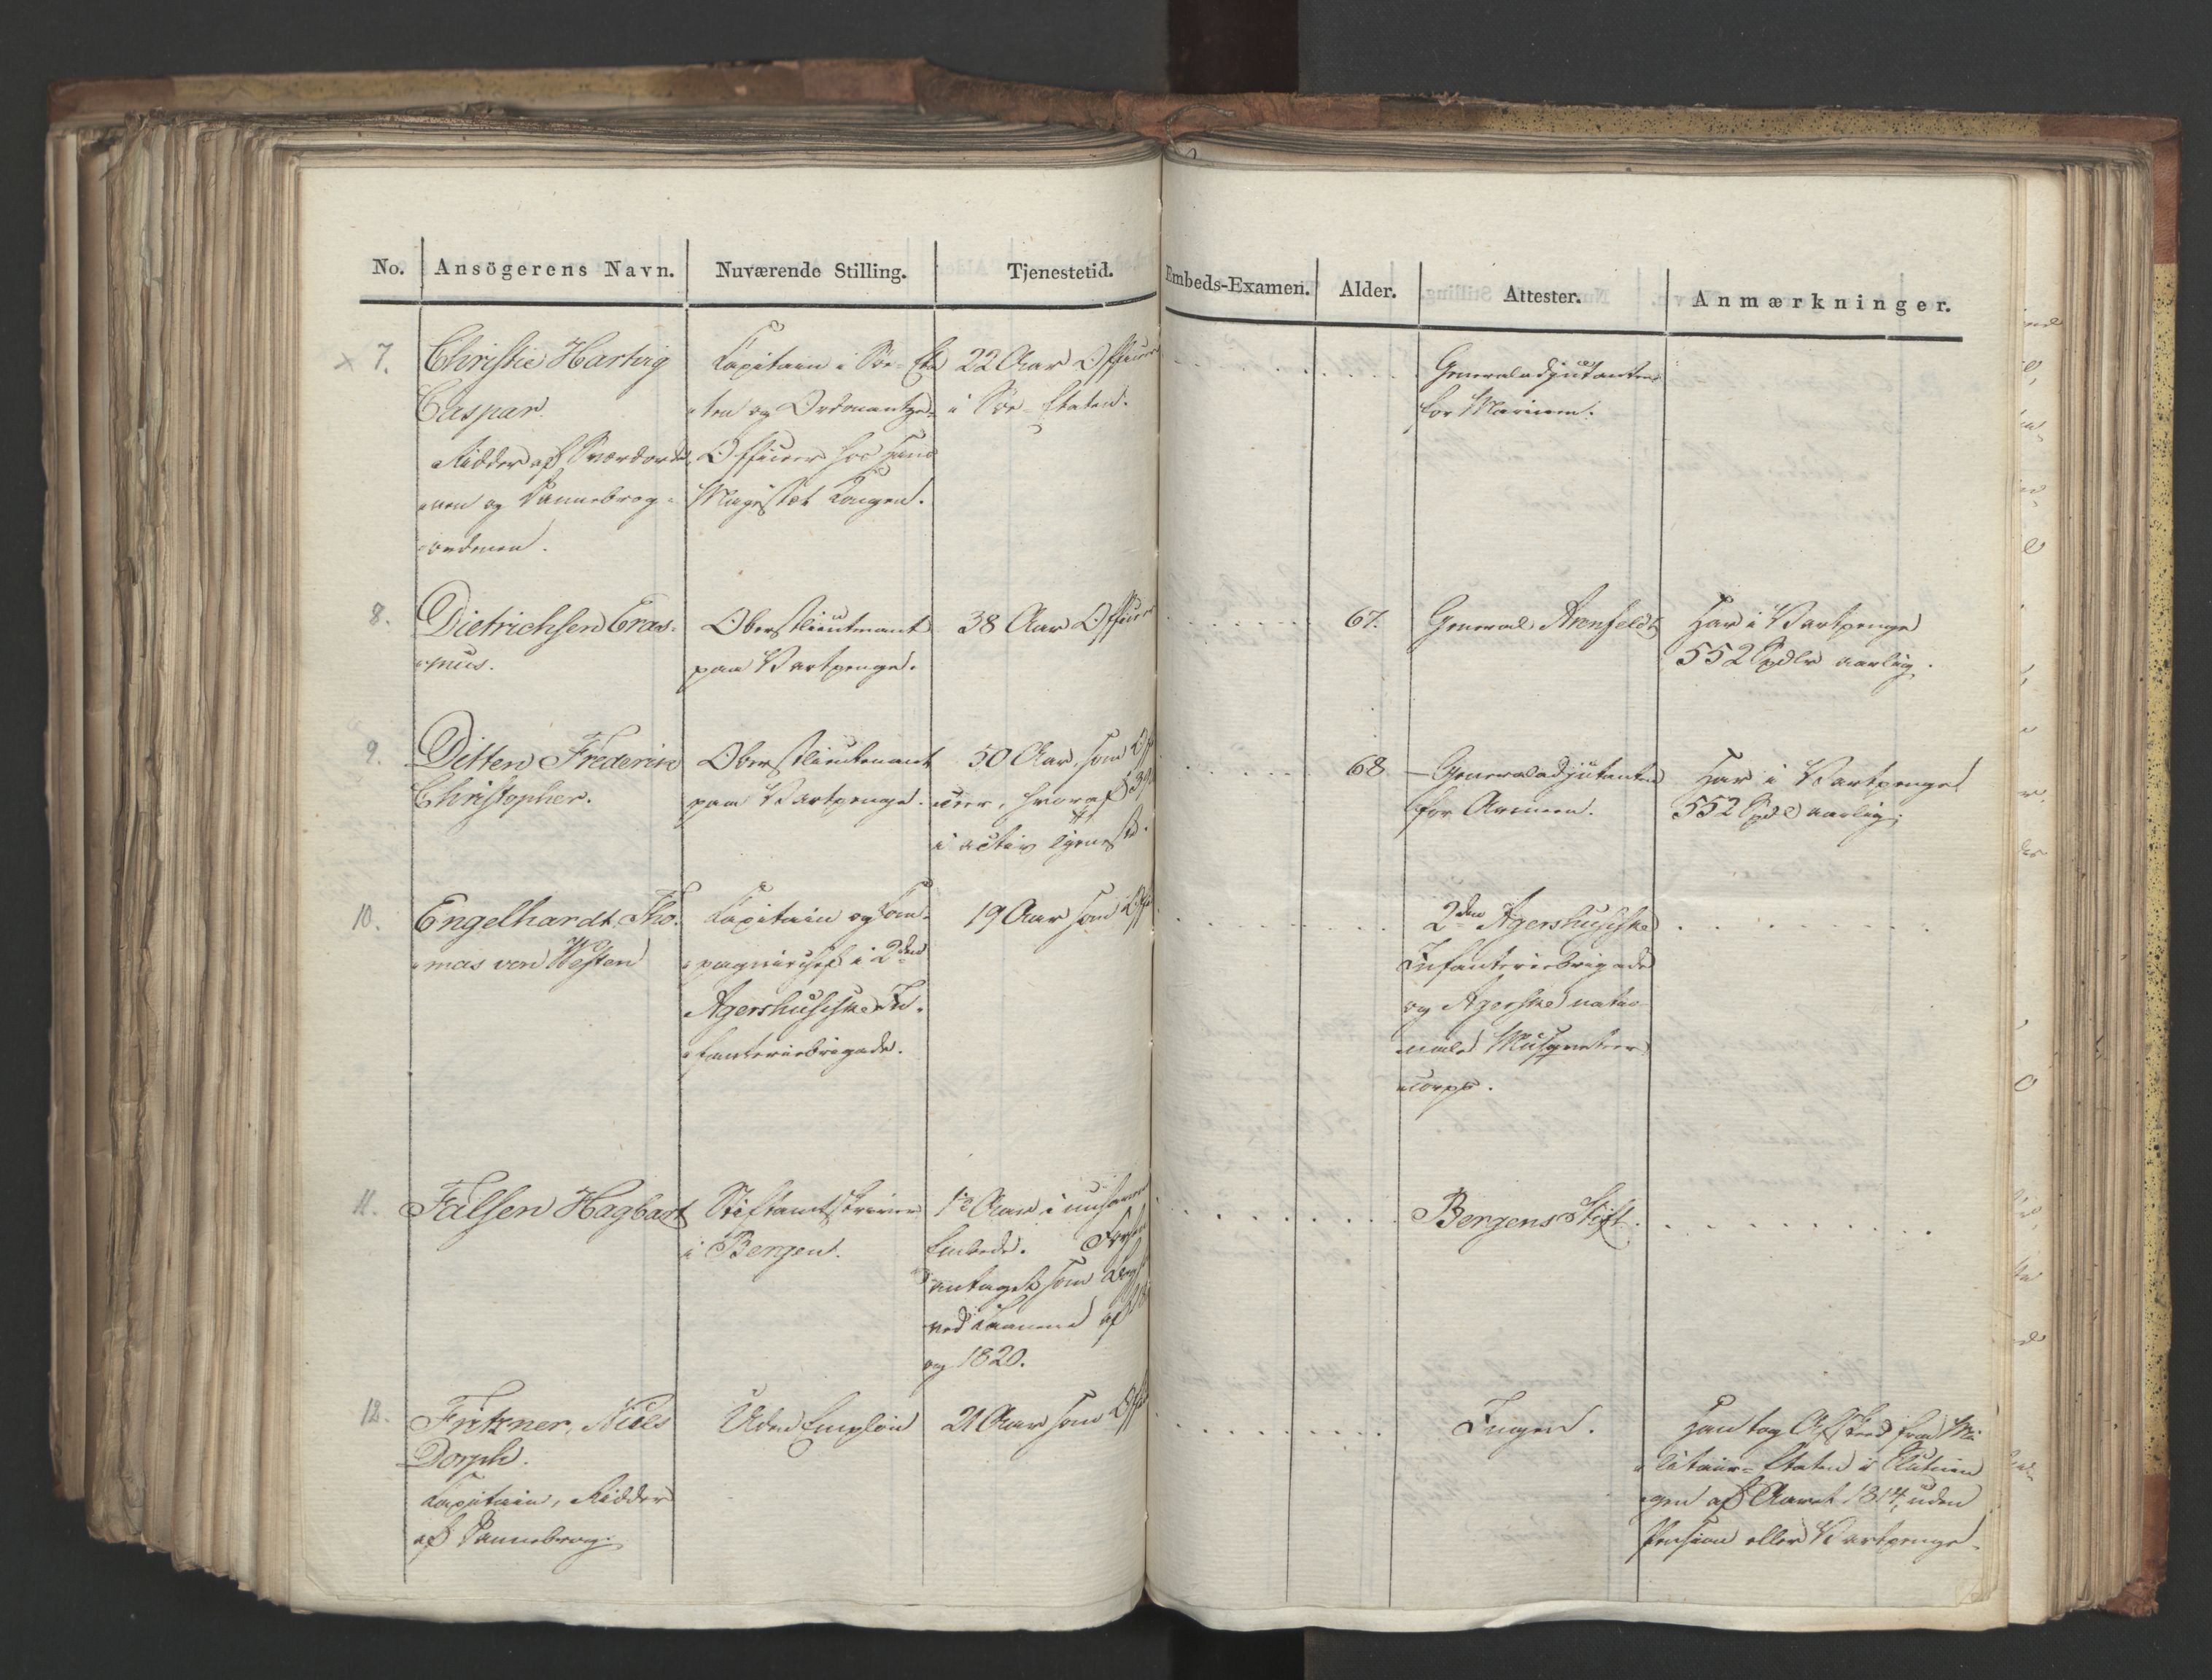 No. Ansögerens Navn. Nuværende Stilling. Tjenestetid. Embeds-Examen. Alder. Attester. Anmærkninger.
× 7.
Christie Hartvig
Caspar.
Ridder af Sværdorde
nen og Dannebrog-
ordenen.
Capitain i Söe-Eta
ten og Ordonantze-
Officier hos Hans
Majestæt Kongen.
22 Aar Officier
i Söe-Etaten.
Generaladjutanten
for Marinen.
8.
Dietrichsen Eras-
mus.
Oberstlieutnant
paa Vartpenge.
38 Aar Officier
67.
General Arenfeldt
Har i Vartpenge
552 Spdlr aarlig.
9.
Ditten Frederik
Christopher.
Oberstlieutenant
paa Vartpenge.
50 Aar, som Offi
cier, hvoraf
i activ Tjeneste.
68
Generaladjutanten
for Armeen.
Har i Vartpenge
552 Spd aarlig.
10.
Engelhardt Tho-
mas von Westen
Capitain og Com-
pagniechef i 2den
Agershusiske In-
fanteriebrigade.
19 Aar som Offi
2den Agershusiske
Infanteriebrigade
og Agerske natio
nale Musqueteer
corps.
11.
Falsen Hagbart
Stiftamtskriver
i Bergen.
Aar i nuhavende
Embede.
antaget som
ved af
og 1820.
Bergens Stift.
12.
Fritzner, Niels
Dorph.
Capitain, Ridder
af Dannebrog.
Uden Emploi
21 Aar som Offi
Ingen.
Han tog Afskeed fra Mi
litair-Etaten i Slutnin
gen af Aaret 1814, uden
Pension eller Vartpenge.